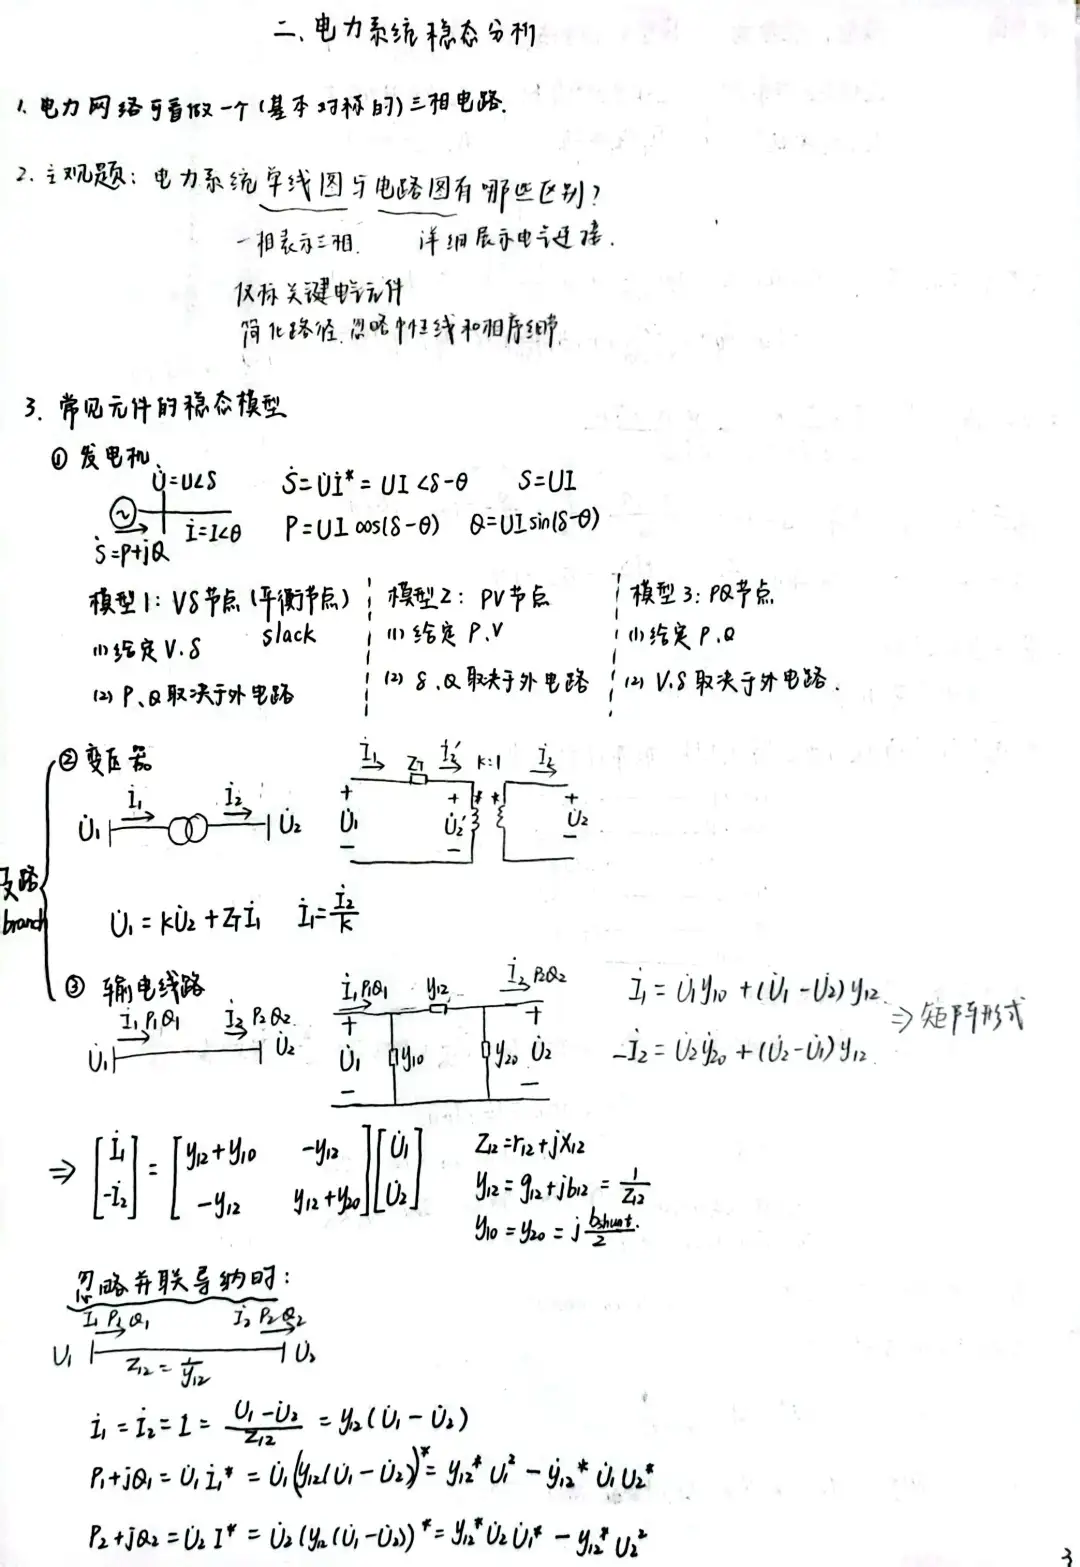 二、电力系统稳态分析
1. 电力网络可看做一个(基本对称的)三相电路.
2. 主观题: 电力系统单线图与电路图有哪些区别?
一相表示三相. 详细展示电气连接.
仅标关键电气元件
简化路径.忽略中性线和相序细节
3. 常见元件的稳态模型
① 发电机
U̇=U∠δ Ṡ=U̇İ*=UI∠δ-θ S=UI
~ İ=I∠θ P=UIcos(δ-θ) Q=UIsin(δ-θ)
Ṡ=P+jQ
模型1: Vδ节点(平衡节点) 模型2: PV节点 模型3: PQ节点
slack
(1)给定V.δ (1)给定P.V (1)给定P.Q
(2) P、Q取决于外电路 (2) δ、Q取决于外电路 (2) V.δ取决于外电路.
支路
branch
② 变压器
İ₁ İ₂ İ₁ Z_T İ₂′ k:1 İ₂
U̇₁ U̇₂ + U̇₁ − + U̇₂′ − * * + U̇₂ −
U̇₁=kU̇₂+Z_Tİ₁ İ₁=İ₂/k
③ 输电线路
İ₁ P₁Q₁ İ₂ P₂Q₂ İ₁ P₁Q₁ y₁₂ İ₂ P₂Q₂
U̇₁ U̇₂ + U̇₁ − y₁₀ y₂₀ + U̇₂ −
İ₁=U̇₁y₁₀+(U̇₁-U̇₂)y₁₂
-İ₂=U̇₂y₂₀+(U̇₂-U̇₁)y₁₂ ⇒矩阵形式
⇒ [İ₁; -İ₂] = [y₁₂+y₁₀ -y₁₂; -y₁₂ y₁₂+y₂₀][U̇₁; U̇₂]
Z₁₂=r₁₂+jx₁₂
y₁₂=g₁₂+jb₁₂=1/Z₁₂
y₁₀=y₂₀=j b_shunt./2
忽略并联导纳时:
İ₁ P₁Q₁ İ₂ P₂Q₂
U₁ U̇₂
Z₁₂=1/y₁₂
İ₁=İ₂=I=(U₁-U̇₂)/Z₁₂=y₁₂(U̇₁-U̇₂)
P₁+jQ₁=U̇₁İ₁*=U̇₁(y₁₂(U̇₁-U̇₂))*=y₁₂*U₁²-y₁₂*U̇₁U₂*
P₂+jQ₂=U̇₂I*=U̇₂(y₁₂(U̇₁-U̇₂))*=y₁₂*U̇₂U̇₁*-y₁₂*U₂²
3